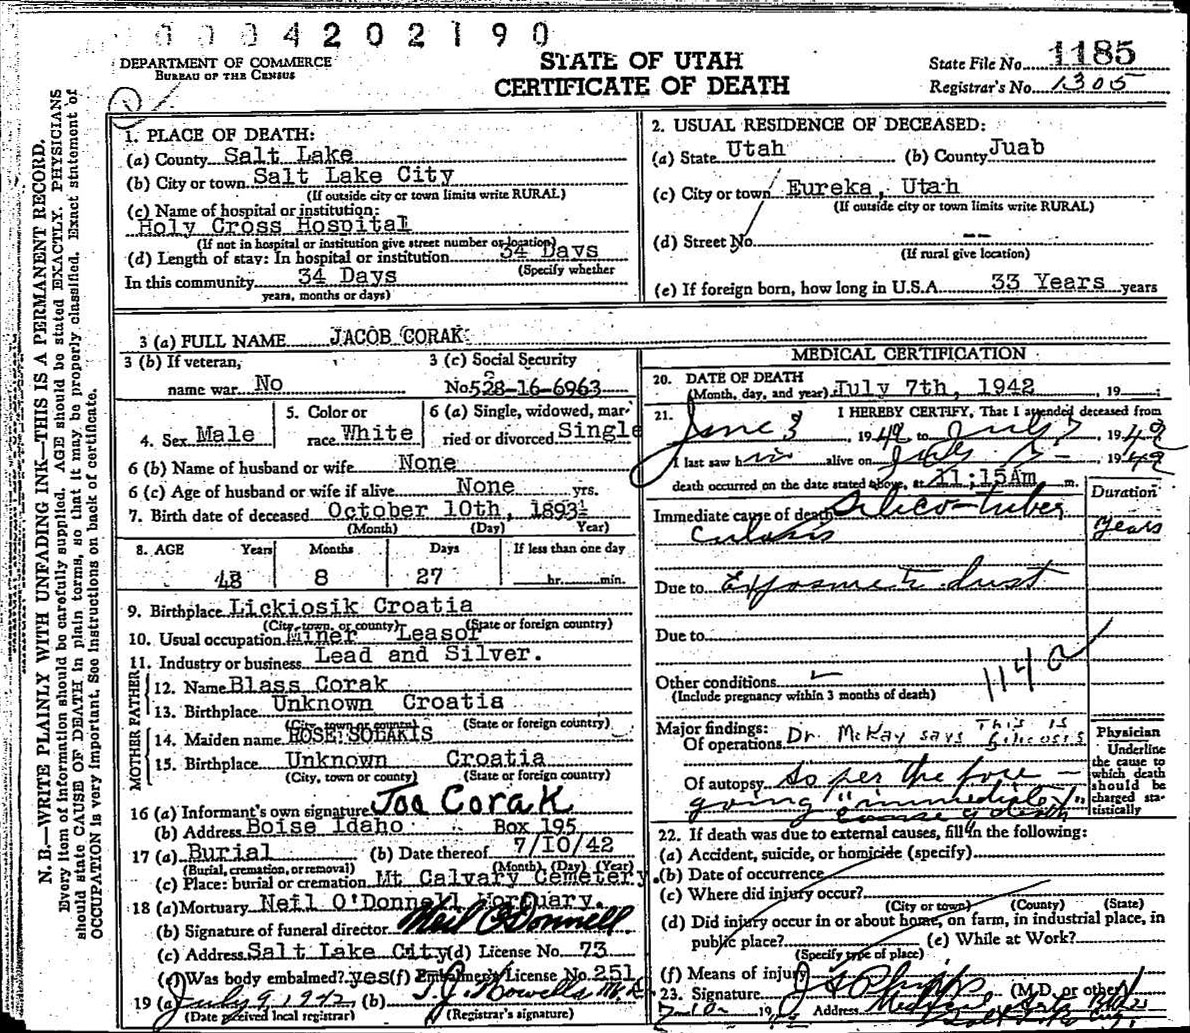 0004202190
DEPARTMENT OF COMMERCE
BUREAU OF THE CENSUS
STATE OF UTAH
CERTIFICATE OF DEATH
State File No. 1185
Registrar's No. 1305
N. B.—WRITE PLAINLY WITH UNFADING INK—THIS IS A PERMANENT RECORD.
Every item of information should be carefully supplied. AGE should be stated EXACTLY. PHYSICIANS
should state CAUSE OF DEATH in plain terms, so that it may be properly classified. Exact statement of
OCCUPATION is very important. See instructions on back of certificate.
1. PLACE OF DEATH:
(a) County Salt Lake
(b) City or town Salt Lake City
(If outside city or town limits write RURAL)
(c) Name of hospital or institution:
Holy Cross Hospital
(If not in hospital or institution give street number or location)
(d) Length of stay: In hospital or institution 34 Days
(Specify whether
In this community 34 Days
years, months or days)
2. USUAL RESIDENCE OF DECEASED:
(a) State Utah (b) County Juab
(c) City or town Eureka, Utah
(If outside city or town limits write RURAL)
(d) Street No. --
(If rural give location)
(e) If foreign born, how long in U.S.A. 33 Years years
3 (a) FULL NAME JACOB CORAK
3 (b) If veteran,
name war No
3 (c) Social Security
No. 528-16-6963
4. Sex Male
5. Color or
race White
6 (a) Single, widowed, mar-
ried or divorced Single
6 (b) Name of husband or wife None
6 (c) Age of husband or wife if alive None yrs.
7. Birth date of deceased October 10th, 1893
(Month) (Day) Year)
8. AGE Years Months Days If less than one day
48 8 27 hr. min.
9. Birthplace Lickiosik Croatia
(City, town, or county) (State or foreign country)
10. Usual occupation Miner Leasor
11. Industry or business Lead and Silver.
FATHER
12. Name Blass Corak
13. Birthplace Unknown Croatia
(City, town or county) (State or foreign country)
MOTHER
14. Maiden name ROSE SODAKIS
15. Birthplace Unknown Croatia
(City, town or county) (State or foreign country)
16 (a) Informant's own signature Joe Corak
(b) Address Boise Idaho Box 195
17 (a) Burial (b) Date thereof 7/10/42
(Burial, cremation, or removal) (Month) (Day) (Year)
(c) Place: burial or cremation Mt Calvary Cemetery.
18 (a) Mortuary Neil O'Donnell Mortuary.
(b) Signature of funeral director Neil O'Donnell
(c) Address Salt Lake City (d) License No. 73
(e) Was body embalmed? yes (f) Embalmer's License No. 251
19 (a) July 9, 1942 (b) T. J. Howells M.D.
(Date received local registrar) (Registrar's signature)
MEDICAL CERTIFICATION
20. DATE OF DEATH
(Month, day, and year) July 7th, 1942 , 19
21. I HEREBY CERTIFY, That I attended deceased from
June 3, 1942 to July 7, 1942
I last saw him alive on July 1942
death occurred on the date stated above, at 11:15Am m.
Duration
Immediate cause of death Silico-tuber
culosis
years
Due to Exposure to dust
Due to
Other conditions
(Include pregnancy within 3 months of death)
114 a
Major findings:
Of operations Dr. McKay says This is Silicosis
Of autopsy so per the fore-
going "immediate"
cause of death
Physician
Underline
the cause to
which death
should be
charged sta-
tistically
22. If death was due to external causes, fill in the following:
(a) Accident, suicide, or homicide (specify)
(b) Date of occurrence
(c) Where did injury occur?
(City or town) (County) (State)
(d) Did injury occur in or about home, on farm, in industrial place, in
public place? (e) While at Work?
(Specify type of place)
(f) Means of injury
23. Signature (M.D. or other)
7-10- 1942 Address Medical Arts Bldg
Salt Lake City,